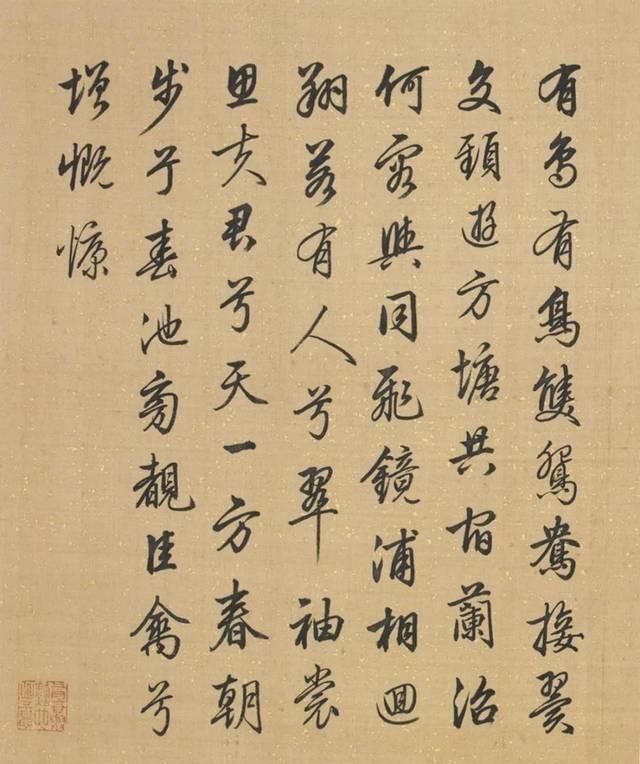 有鳥有鳥雙鴛鴦接翼
交頸遊方塘共宿蘭沼
何容與同飛鏡浦相迴
翔若有人兮翠袖裳
思夫君兮天一方春朝
步兮春池旁覩佳禽兮
增慨慷